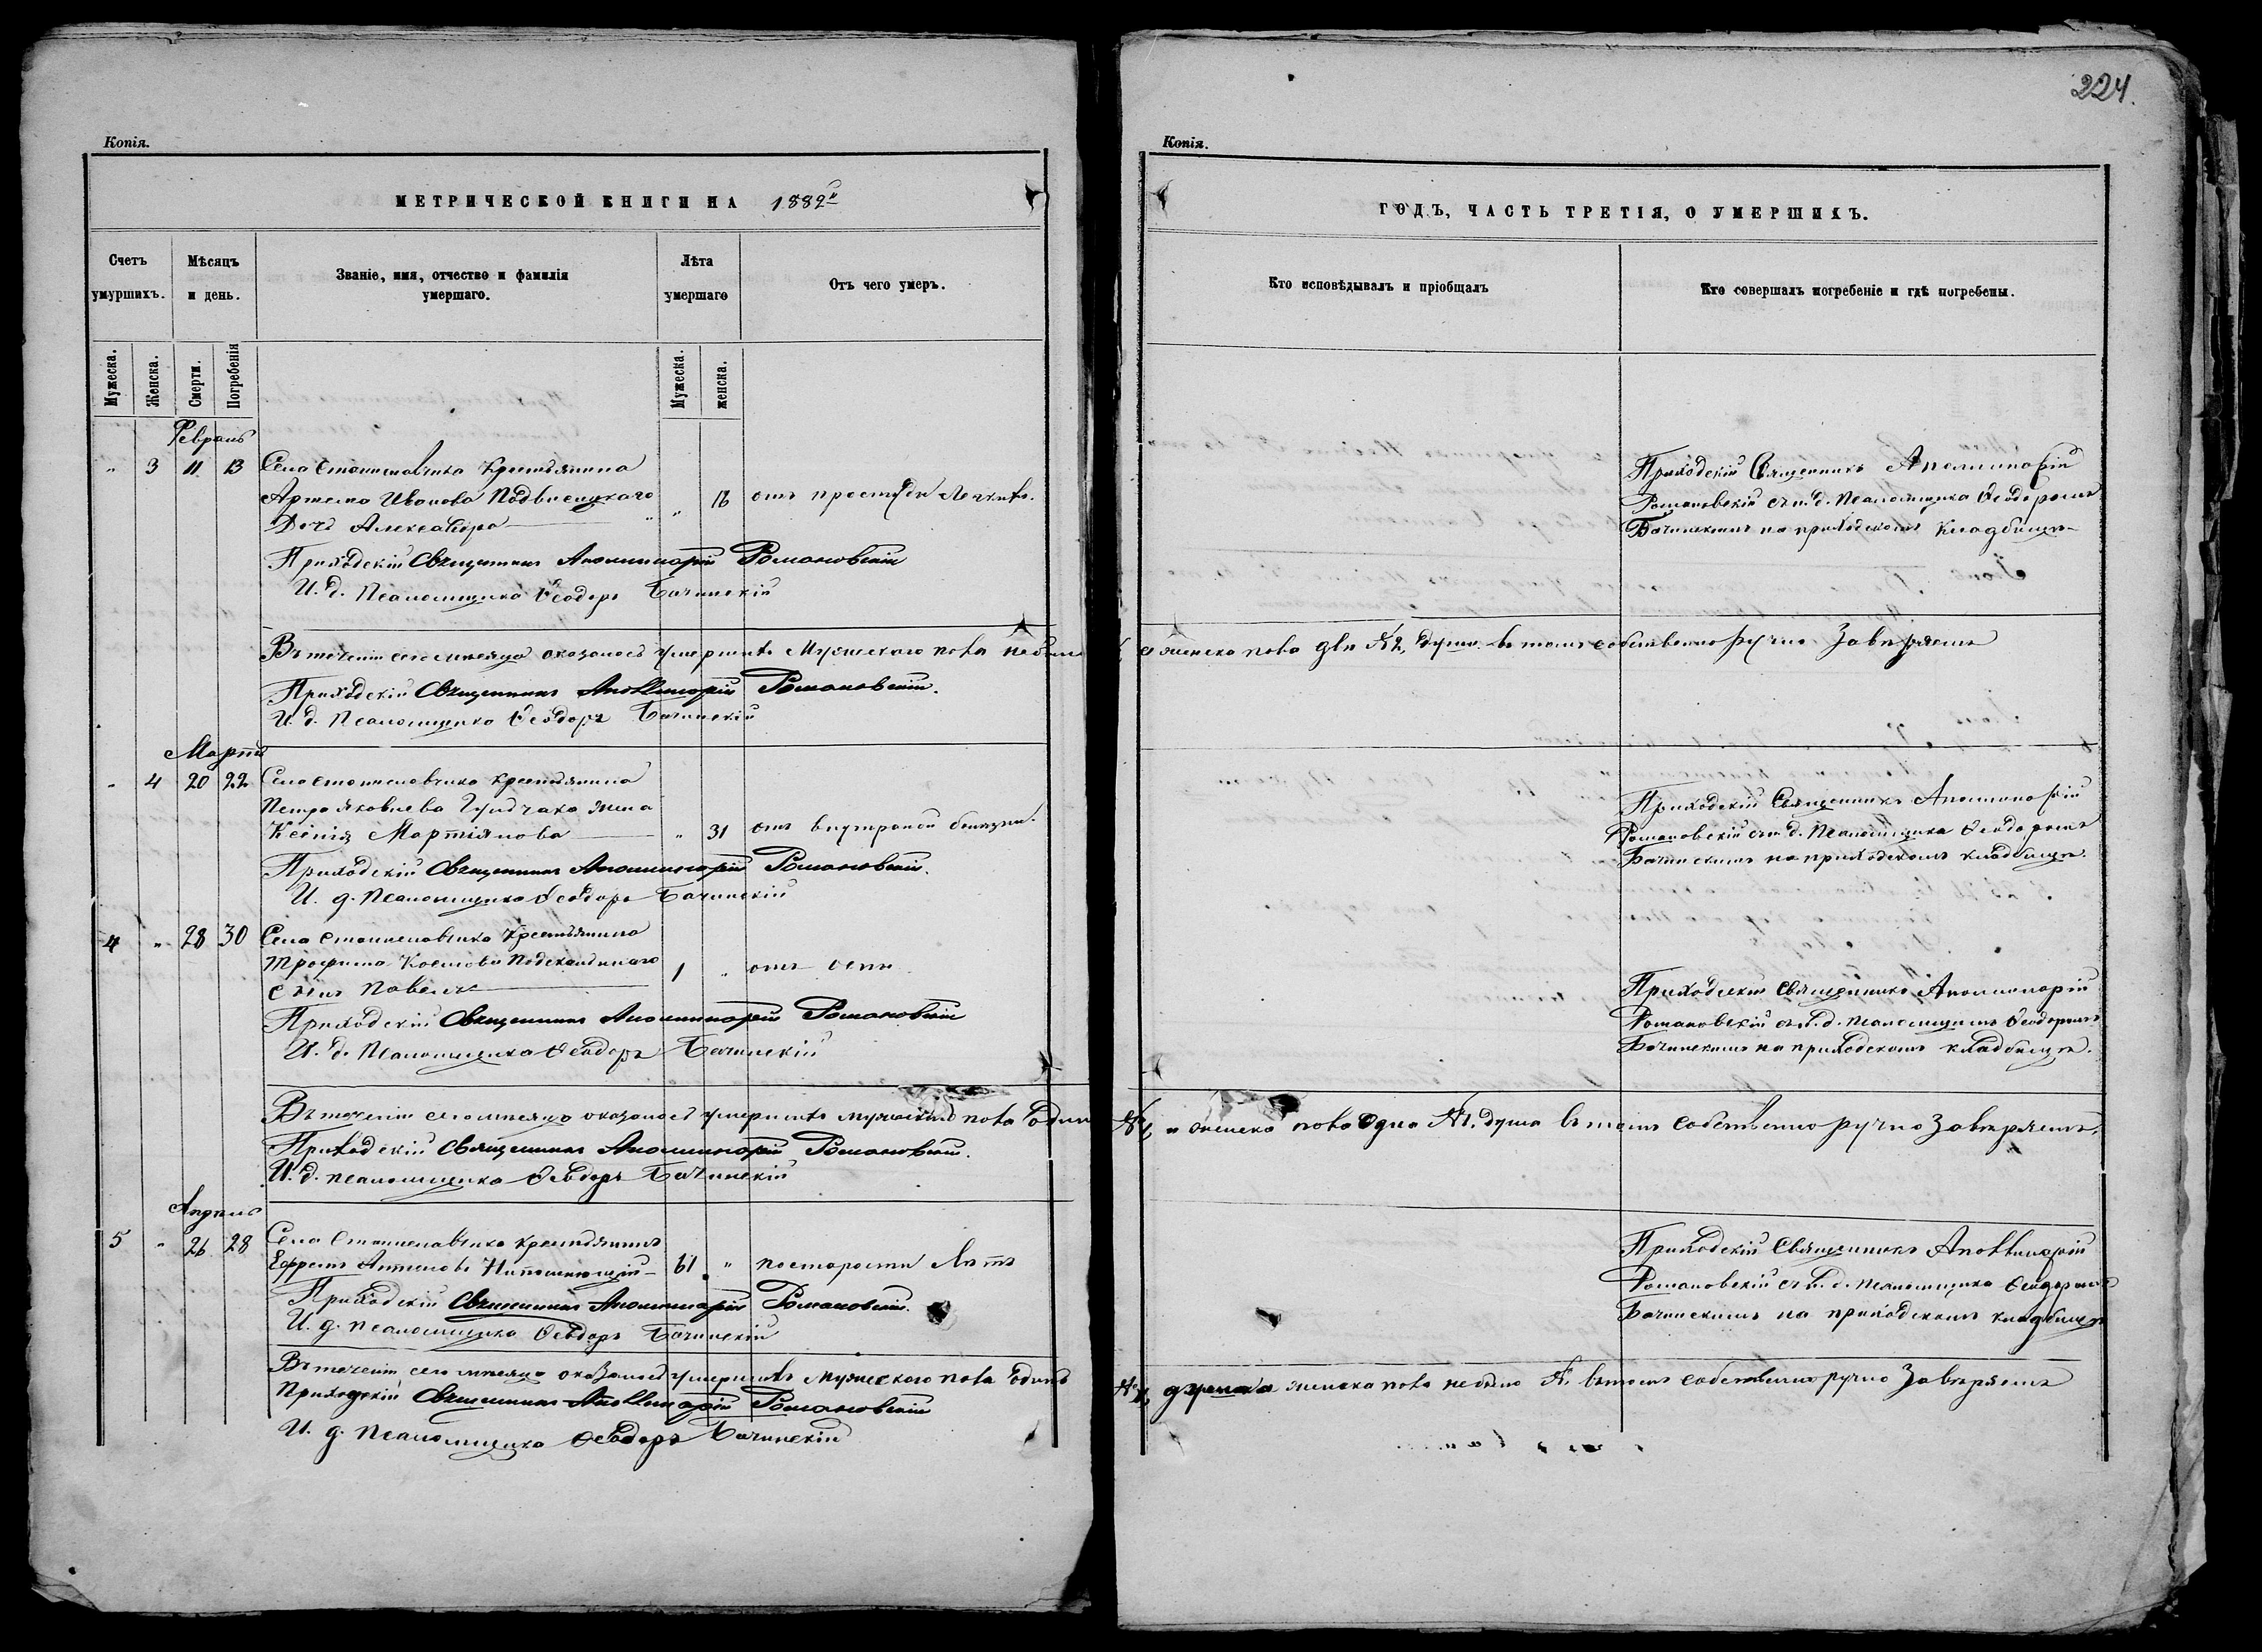 224.
Копія.
МЕТРИЧЕСКОЙ КНИГИ НА 1882й
Счетъ умуршихъ.
Мѣсяцъ и день.
Званіе, имя, отчество и фамилія умершаго.
Лѣта умершаго
Отъ чего умеръ.
Мужеска.
Женска.
Смерти.
Погребенія
Мужеска.
женска.
Февраль
" 3 11 13 Села Станиславчика Крестьянина
Артема Иванова Подвисоцкаго " 18 отъ простуды Легкихъ.
Дочь Александра
Приходскій Священникъ Аполлинарій Романовскій
И. д. Псаломщика Ѳеодоръ Бачинскій
Въ теченіи сего мѣсяца оказалось умершихъ Мужескаго пола небыло
Приходскій Священникъ Аполлинарій Романовскій.
И. д. Псаломщика Ѳеодоръ Бачинскій
Мартъ
" 4 20 22 Села Станиславчика Крестьянина
Петра Яковлева жена
Ксенія Мартіянова " 31 отъ внутраной болѣзни.
Приходскій Священникъ Аполлинарій Романовскій.
И. д. Псаломщика Ѳеодоръ Бачинскій
4 " 28 30 Села Станиславчика Крестьянина
Трофима 1 " отъ оспы
сынъ Павелъ
Приходскій Священникъ Аполлинарій Романовскій
И. д. Псаломщика Ѳеодоръ Бачинскій
Въ теченіи сего мѣсяца оказалось умершихъ мужескаго пола Одинъ
Приходскій Священникъ Аполлинарій Романовскій.
И. д. псаломщика Ѳеодоръ Бачинскій
Апрѣль
5 " 26 28 Села Станиславчика крестьянинъ
Ефремъ 61 " по старости Лѣтъ
Приходскій Священникъ Аполлинарій Романовскій.
И. д. псаломщика Ѳеодоръ Бачинскій
Въ теченіи сего мѣсяца оказалось умершихъ Мужескаго пола Одинъ
Приходскій Священникъ Аполлинарій Романовскій
И. д. Псаломщика Ѳеодоръ Бачинскій
Копія.
ГОДЪ, ЧАСТЬ ТРЕТІЯ, О УМЕРШИХЪ.
Кто исповѣдывалъ и пріобщалъ
Кто совершалъ погребеніе и гдѣ погребены.
Приходскій Священникъ Аполлинарій
Романовскій съ и. д. Псаломщика Ѳеодоромъ
Бачинскимъ на приходскомъ Кладбищѣ
а женска пола двѣ №2, души. въ томъ собственноручно Завѣряемъ
Приходскій Священникъ Аполлинарій
Романовскій съ и. д. Псаломщика Ѳеодоромъ
Бачинскимъ на приходскомъ кладбищѣ.
Приходскій Священникъ Аполлинарій
Романовскій съ и. д. псаломщикомъ Ѳеодоромъ
Бачинскимъ на приходскомъ кладбищѣ.
№1, и женска пола Одна №1. душа въ томъ собственноручно Завѣряемъ.
Приходскій Священникъ Аполлинарій
Романовскій съ и. д. псаломщика Ѳеодоромъ
Бачинскимъ на приходскомъ кладбищѣ
№1, женска пола небыло №. въ томъ собственноручно Завѣряемъ